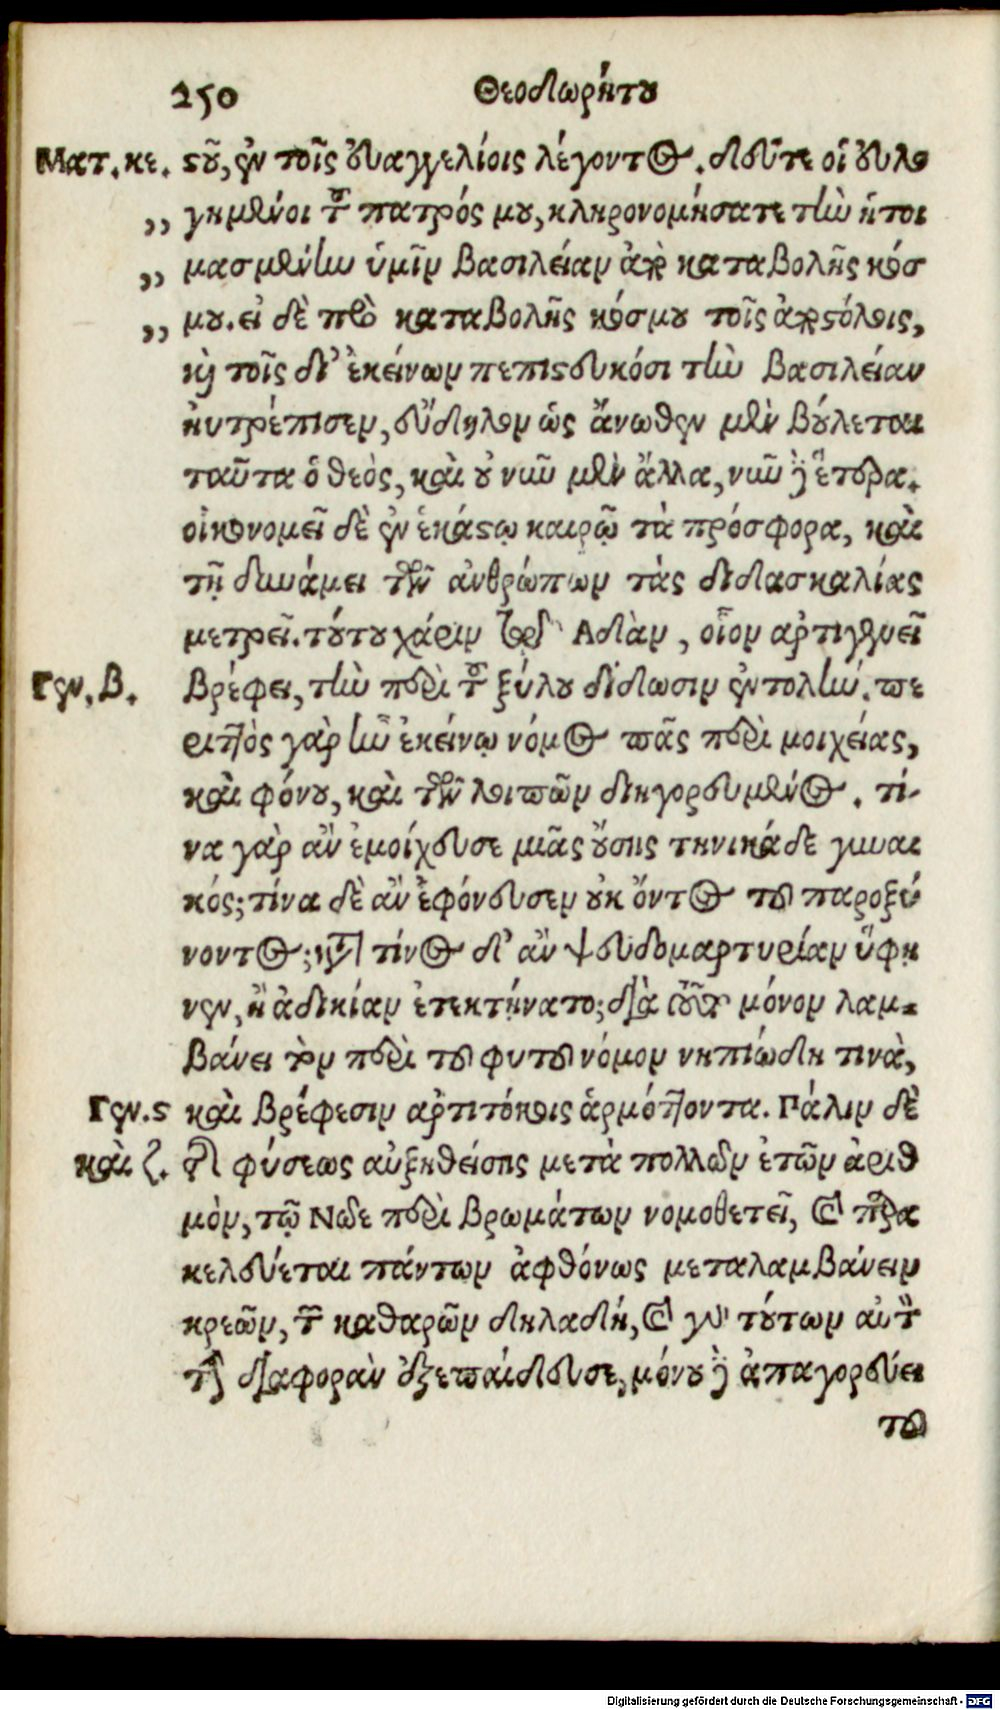 250 Θεοδωρήτου
Ματ. κε. στοῦ, ἐν τοῖς εὐαγγελίοις λέγοντος. δεῦτε οἱ εὐλο
,, γημένοι τοῦ πατρός μου, κληρονομήσατε τὴν ἡτοι
,, μασμένην ὑμῖν βασιλείαν ἀπὸ καταβολῆς κόσ
,, μου. εἰ δὲ πρὸ καταβολῆς κόσμου τοῖς ἀποστόλοις,
καὶ τοῖς δι' ἐκείνων πεπιστευκόσι τὴν βασιλείαν
ηὐτρέπισεν, εὔδηλον ὡς ἄνωθεν μὲν βούλεται
ταῦτα ὁ θεὸς, καὶ οὐ νῦν μὲν ἄλλα, νῦν δὲ ἕτερα.
οἰκονομεῖ δὲ ἐν ἑκάστῳ καιρῷ τὰ πρόσφορα, καὶ
τῇ δυνάμει τῶν ἀνθρώπων τὰς διδασκαλίας
μετρεῖ. τούτου χάριν τῷ Ἀδὰμ, οἷον ἀρτιγενεῖ
Γεν. β. βρέφει, τὴν περὶ τοῦ ξύλου δίδωσιν ἐντολήν. πε
ριττὸς γὰρ ἦν ἐκείνῳ νόμος πᾶς περὶ μοιχείας,
καὶ φόνου, καὶ τῶν λοιπῶν διηγορευμένος. τί-
να γὰρ ἂν ἐμοίχευσε μιᾶς οὔσης τηνικάδε γυναι
κός; τίνα δὲ ἂν ἐφόνευσεν οὐκ ὄντος τοῦ παροξύ
νοντος; κατὰ τίνος δ' ἂν ψευδομαρτυρίαν ὕφη
νεν, ἢ ἀδικίαν ἐτεκτήνατο; διὰ τοῦτο μόνον λαμ-
βάνει τὸν περὶ τοῦ φυτοῦ νόμον νηπιώδη τινὰ,
Γεν. ς καὶ βρέφεσιν ἀρτιτόκοις ἁρμόττοντα. Πάλιν δὲ
καὶ ζ. τῆς φύσεως αὐξηθείσης μετὰ πολλῶν ἐτῶν ἀριθ
μὸν, τῷ Νῶε περὶ βρωμάτων νομοθετεῖ, καὶ παρα
κελεύεται πάντων ἀφθόνως μεταλαμβάνειν
κρεῶν, τῶν καθαρῶν δηλαδή, καὶ γὰρ τούτων αὐτὸν
τὴν διαφορὰν ἐξεπαίδευσε, μόνου δὲ ἀπαγορεύει
τοῦ
Digitalisierung gefördert durch die Deutsche Forschungsgemeinschaft - DFG